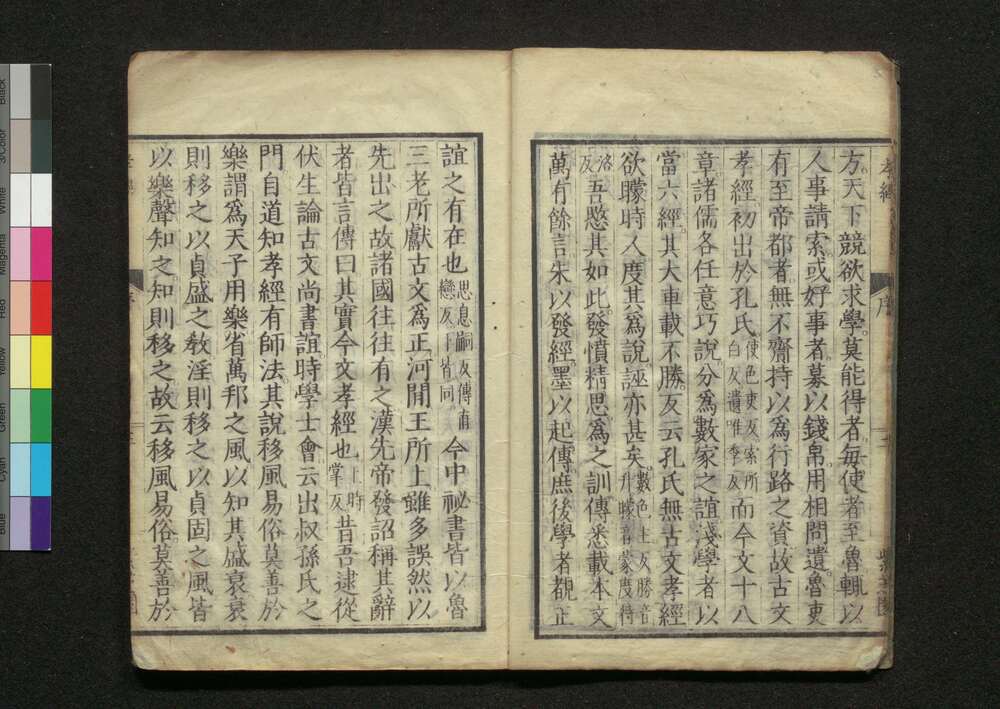 方。天下競欲求學。莫能得者。每使者至魯。輒以
人事請索。或好事者。募以錢帛。用相問遺。魯吏
有至帝都者。無不齎持以為行路之資。故古文
孝經初出於孔氏使色吏反索所白反遺唯季反而今文十八
章。諸儒各任意巧說。分為數家之誼。淺學者。以
當六經。其大車載不勝。反云孔氏無古文孝經。
欲矇時人。度其為說。誣亦甚矣數色主反勝音升矇音蒙度待
洛反吾愍其如此。發憤精思。為之訓傳。悉載本文。
萬有餘言。朱以發經。墨以起傳。庶後學者。覩正
誼之有在也思息嗣反傳直戀反下皆同今中祕書皆以魯
三老所獻古文為正河閒王所上雖多誤然以
先出之故諸國往往有之漢先帝發詔稱其辭
者皆言傳曰其實今文孝經也上時掌反昔吾逮從
伏生論古文尚書誼時學士會云出叔孫氏之
門自道知孝經有師法其說移風易俗莫善於
樂謂為天子用樂省萬邦之風以知其盛衰衰
則移之以貞盛之教淫則移之以貞固之風皆
以樂聲知之知則移之故云移風易俗莫善於
Black
3/Color
White
Magenta
Red
Yellow
Green
Cyan
Blue